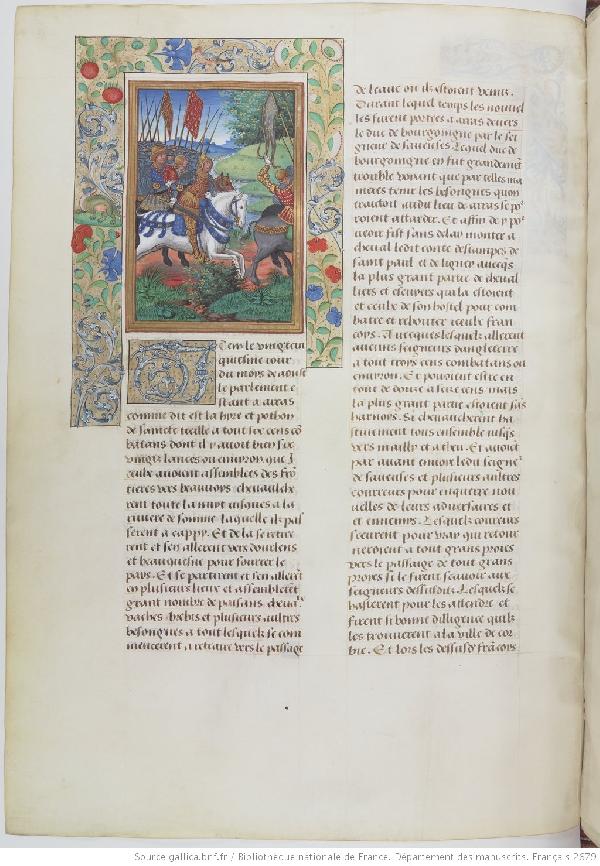 Tem le vingtcin
quiesme jour
du mois daoust
le parlement e
stant a arras
comme dit est la hyre et pothon
de saincte treille a tout six cens cõ
batans dont il y avoit bien six
vingtz lances ou environ que
eulx avoient assemblees des frõ
tieres vers beauvoys chevaulche
rent toute la nuyt jusques a la
riviere de somme laquelle ilz pas
serent a cappy Et de la se retire
rent et sen allerent vers dourlens
et beauquesne pour fourrer le
pays Et se partirent et sen allerẽt
en plusieurs lieux et assemblerẽt
grant nombre de paisans chevaulx
vaches brebis et plusieurs aultres
besongnes a tout lesquelz se com
mencerent a retraire vers le passage
de leaue ou ilz estoient venuz.
Durant lequel temps les nouvel
les furent portees a arras devers
le duc de bourgoingne par le sei
gneur de saveuses Lequel duc de
bourgoingne en fut grandemẽt
trouble voyant que par telles ma
nieres tenir les besongnes quon
traictoit audit lieu de arras se po
roient attarder. Et affin de y po
rveoir fist sans delay monter a
cheval ledit conte destampes de
saint paul et de ligney avecqs
la plus grant partie de cheval
liers et escuiers qui la estoient
et ceulx de son hostel pour com
batre et rebouter iceulx fran
coys. Avecques lesquelz allerent
aucuns seigneurs dangleterre
a tout troys cens combatans ou
environ. Et povoient estre en
tout de douze a seize cens mais
la plus grant partie estoient sãs
harnoys. Si chevaucherent ha
stivement tous ensemble jusqs
vers mailly et acheu. Et avoiẽt
par avant envoie ledit seignẽ
de saveuses et plusieurs aultres
coureurs pour enquerre nou
velles de leurs adversaires et
et ennemys. Lesquelz coureurs
sceurent pour vray que retour
neroient a tout grans proies
vers le passage de tout grans
proyes si le firent scavoir aux
seigneurs dessusdits. Lesquelz se
hasterent pour les attendre et
firent si bonne diligence quilz
les trouverent a la ville de cor
bie. Et lors les dessusdits frãcois
Source gallica.bnf.fr / Bibliothèque nationale de France. Département des manuscrits. Français 2679